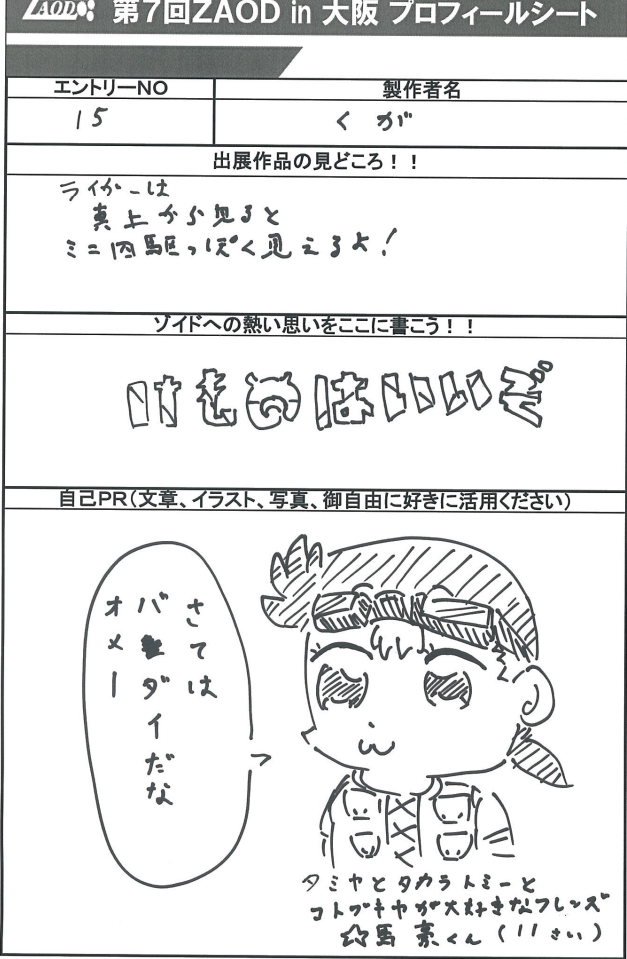 ZAOD 第7回ZAOD in 大阪 プロフィールシート
エントリーNO
製作者名
15
くが
出展作品の見どころ!!
ライガーは
真上から見ると
ミニ四駆っぽく見えるよ!
ゾイドへの熱い思いをここに書こう!!
けものはいいぞ
自己PR(文章、イラスト、写真、御自由に好きに活用ください)
さては
バンダイだな
オメー
タミヤとタカラトミーと
コトブキヤが大好きなフレンズ
馬 豪くん(11さい)